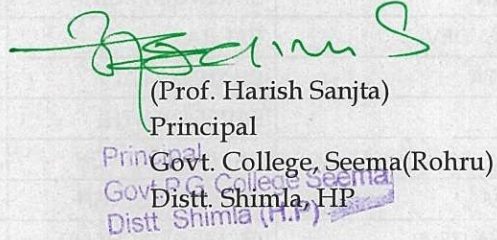 (Prof. Harish Sanjta)
Principal
Govt. College, Seema(Rohru)
Distt. Shimla, HP
Principal
Govt P.G. College Seema
Distt Shimla (H.P)